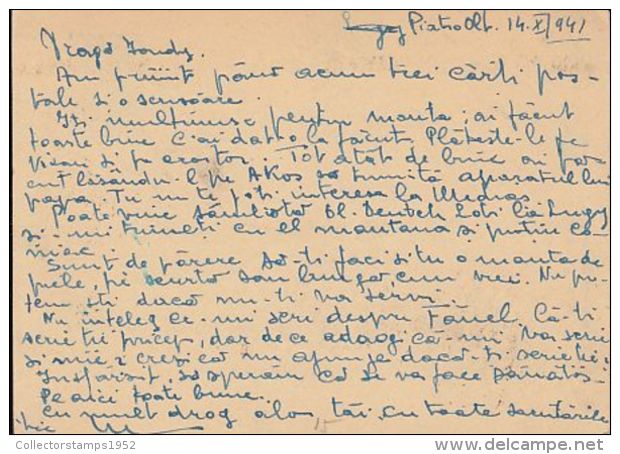 Piatra Olt. 14.X/941
Dragă
Am primit până acum trei cărți poș-
tale și o scrisoare.
Îți mulțumesc pentru manta; ai făcut
foarte bine c'ai dat-o la făcut. Plătește-le pe
și pe croitor. Tot atât de bine ai fă-
cut lăsându-l pe Akos să trimită aparatul lui
papa. Tu nu te poți interesa la Mediaș
Poate vine sâmbătă dl. Deutsch Loti la Lugoj
și -mi trimeți cu el mantaua și puțin co-
niac.
Sunt de părere să-ți faci și tu o manta de
piele, pe scurtă sau lungă, cum vrei. Nu pu-
tem ști dacă nu-ți va servi.
Nu înțeleg ce-mi scri despre Fănel. Că-ți
scrie ție pricep, dar de ce adaogi că-mi va scrie
și mie; crezi că nu ajunge dacă-ți scrie ție.
Însfârșit, să sperăm că se va face sănătos.
Pe aici toate bune.
Cu mult drag alor tăi, cu toate salutările
15
Collectorstamps1952
delcampe.net